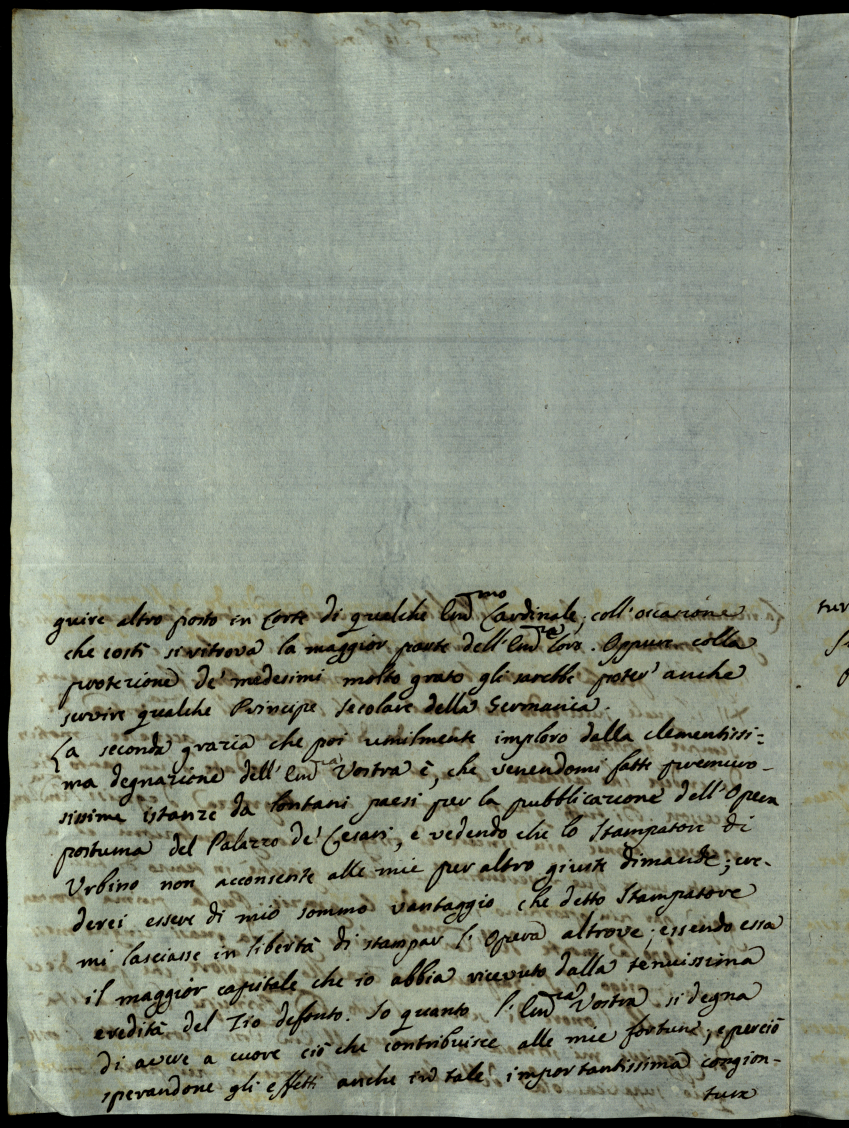 guire altro posto in Corte di qualche Em.mo Cardinale, coll'occasione
che costì si ritrova la maggior parte dell'Em.ze loro. Oppure colla
protezione de' medesimi molto grato gli sarebbe poter' anche
servire qualche Principe secolare della Germania.
La seconda grazia che poi umilmente imploro dalla clementissi=
ma degnazione dell'Em.za Vostra è, che venendomi fatte premuro-
sissime istanze da lontani paesi per la pubblicazione dell'Opera
postuma del Palazzo de' Cesari, e vedendo che lo Stampatore di
Urbino non acconsente alle mie per altro giuste dimande; cre-
derei essere di mio sommo vantaggio che detto Stampatore
mi lasciasse in libertà di stampar l'Opera altrove; essendo essa
il maggior capitale che io abbia ricevuto dalla tenuissima
eredità del Zio defonto. So quanto l'Em.za Vostra si degna
di avere a cuore ciò che contribuisce alle mie fortune, e perciò
sperandone gli effetti anche in tale importantissima congion-
tura
tur